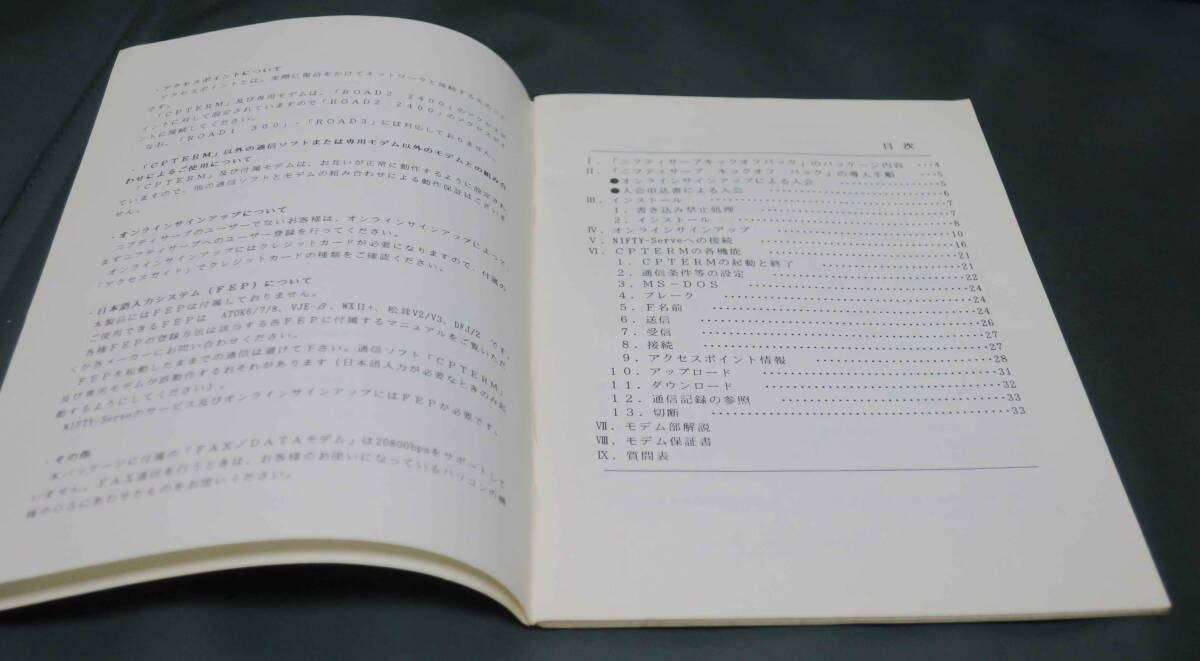 ・アクセスポイントについて
アクセスポイントとは、実際に電話をかけてネットワークと接続するところ
です。
「CPTERM」及び専用モデムは、「ROAD2 2400」のアクセスポ
イントに対して設定されていますので「ROAD2 2400」のアクセスポイ
ントに接続してください。
なお、「ROAD1 300」・「ROAD3」には対応しておりません。
・「CPTERM」以外の通信ソフトまたは専用モデム以外のモデムとの組み合
わせによるご使用について
「CPTERM」及び付属モデムは、お互いが正常に動作するように設定され
ていますので、他の通信ソフトとモデムの組み合わせによる動作保証はございま
せん。
・オンラインサインアップについて
ニフティサーブのユーザーでないお客様は、オンラインサインアップによって
まずニフティサーブへのユーザー登録を行ってください。
オンラインサインアップにはクレジットカードが必要になりますので、付属の
「アクセスガイド」でクレジットカードの種類をご確認ください。
・日本語入力システム(FEP)について
本製品にはFEPは付属しておりません。
ご使用できるFEPは ATOK6/7/8、VJE-β、WXⅡ+、松茸V2/V3、DFJ/2 です。
各種FEPの登録方法は該当する各FEPに付属するマニュアルをご覧いただ
くか各メーカーにお問い合わせください。
FEPを起動したままでの通信は避けて下さい。通信ソフト「CPTERM」
及び専用モデムが誤動作するおそれがあります(日本語入力が必要なときのみ起
動するようにしてください)。
NIFTY-Serveのサービス及びオンラインサインアップにはFEPが必要です。
・その他
本パッケージに付属の「FAX/DATAモデム」は20800bpsをサポートして
いません。FAX通信を行うときは、お客様のお使いになっているパソコンの機
種やOSにあわせたものをお使いください。
目 次
Ⅰ.「ニフティサーブキックオフパック」のパッケージ内容 ・・・4
Ⅱ.「ニフティサーブ キックオフ パック」の導入手順 ・・・・5
●オンラインサインアップによる入会 ・・・・・・・・・・・・5
●入会申込書による入会 ・・・・・・・・・・・・・・・・・・6
Ⅲ.インストール ・・・・・・・・・・・・・・・・・・・・・・7
1.書き込み禁止処理 ・・・・・・・・・・・・・・・・・・・7
2.インストール ・・・・・・・・・・・・・・・・・・・・・8
Ⅳ.オンラインサインアップ ・・・・・・・・・・・・・・・・・10
Ⅴ.NIFTY-Serveへの接続 ・・・・・・・・・・・・・・・・16
Ⅵ.CPTERMの各機能 ・・・・・・・・・・・・・・・・・・・21
1.CPTERMの起動と終了 ・・・・・・・・・・・・・・・・21
2.通信条件等の設定 ・・・・・・・・・・・・・・・・・・・22
3.MS-DOS ・・・・・・・・・・・・・・・・・・・・・・24
4.ブレーク ・・・・・・・・・・・・・・・・・・・・・・・24
5.F名前 ・・・・・・・・・・・・・・・・・・・・・・・・24
6.送信 ・・・・・・・・・・・・・・・・・・・・・・・・・26
7.受信 ・・・・・・・・・・・・・・・・・・・・・・・・・27
8.接続 ・・・・・・・・・・・・・・・・・・・・・・・・・27
9.アクセスポイント情報 ・・・・・・・・・・・・・・・・・28
10.アップロード ・・・・・・・・・・・・・・・・・・・・31
11.ダウンロード ・・・・・・・・・・・・・・・・・・・・32
12.通信記録の参照 ・・・・・・・・・・・・・・・・・・・33
13.切断 ・・・・・・・・・・・・・・・・・・・・・・・・33
Ⅶ.モデム部解説
Ⅷ.モデム保証書
Ⅸ.質問表